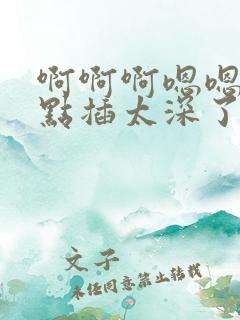 啊啊啊嗯嗯
點插太深了
文子
未经同意禁止转载